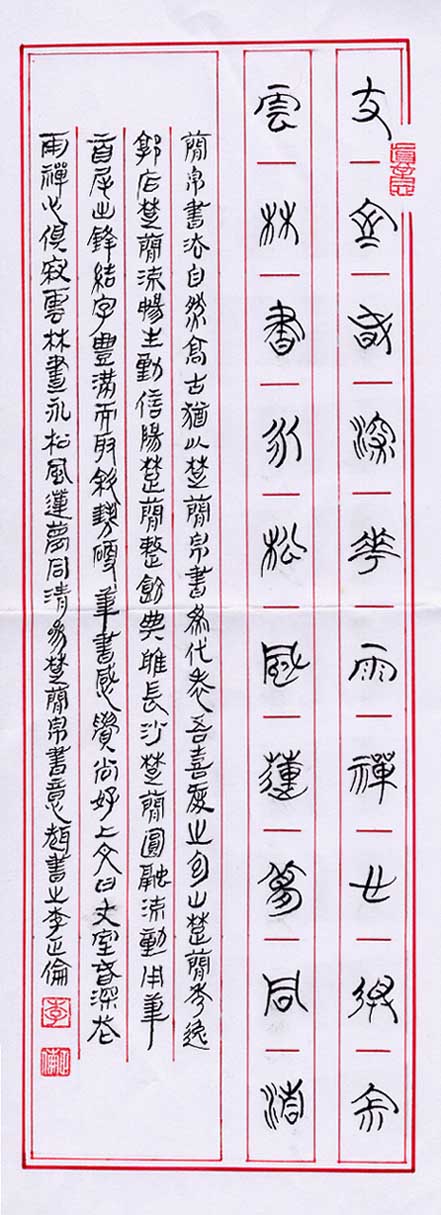 丈室春深花雨禪心俱寂
雲林晝永松風蓮夢同清
簡帛書法自然高古猶以楚簡帛書為代表吾喜愛之包山楚簡秀逸
郭店楚簡流暢生動信陽楚簡整飭典雅長沙楚簡圓融流動用筆
首尾出鋒結字豐滿而取斜勢硬筆書感覺尚好上文曰丈室春深花
雨禪心俱寂雲林晝永松風蓮夢同清楚簡帛書意書之李正倫
李
正倫